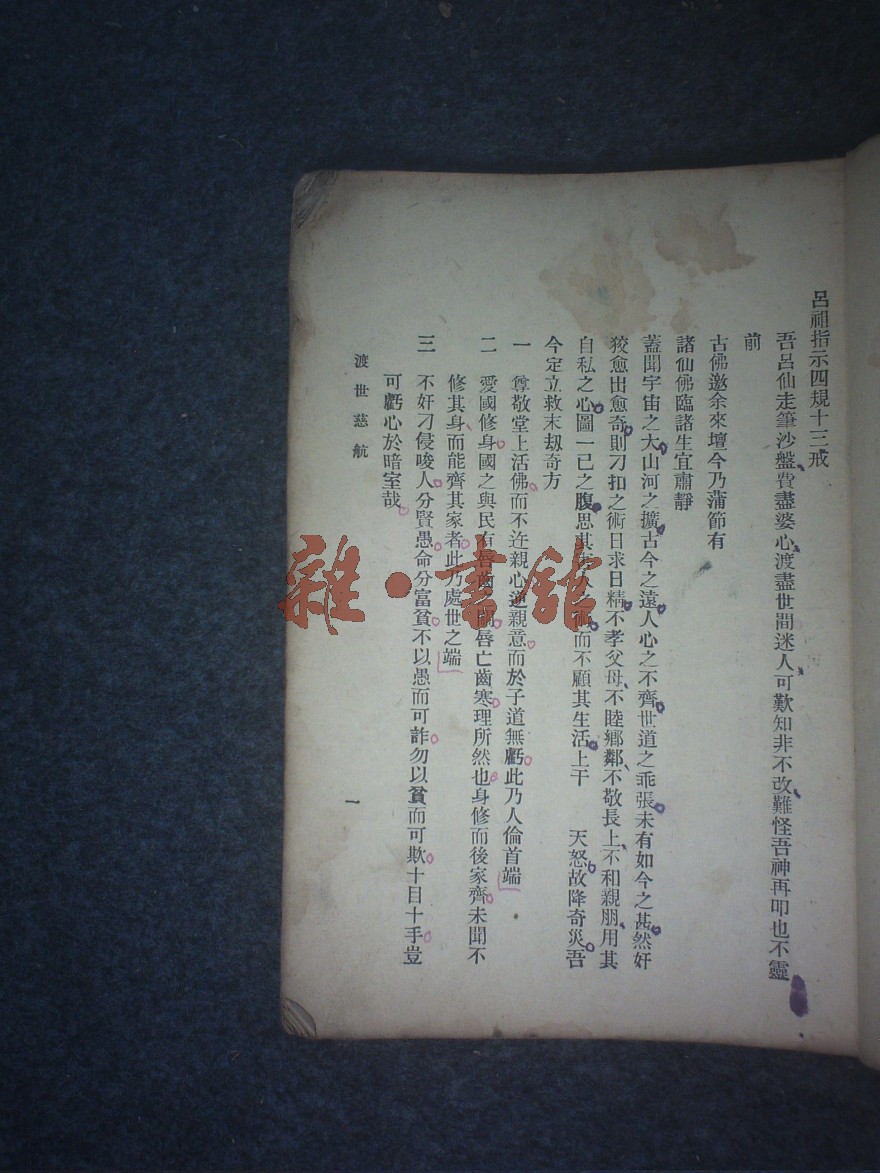 呂祖指示四規十三戒
吾呂仙走筆沙盤費盡婆心渡盡世間迷人可歎知非不改難怪吾神再叩也不靈
前
古佛邀余來壇今乃蒲節有
諸仙佛臨諸生宜肅靜
蓋聞宇宙之大山河之擴古今之遠人心之不齊世道之乖張未有如今之甚然奸
狡愈出愈奇則刁扣之術日求日精不孝父母不睦鄉鄰不敬長上不和親朋用其
自私之心圖一己之腹思其 人 而不顧其生活上干 天怒故降奇災吾
今定立救末刼奇方
一 尊敬堂上活佛而不迕親心逆親意而於子道無虧此乃人倫首端
二 愛國修身國之與民有唇齒之關唇亡齒寒理所然也身修而後家齊未聞不
修其身而能齊其家者此乃處世之端
三 不奸刁侵唆人分賢愚命分富貧不以愚而可詐勿以貧而可欺十目十手豈
可虧心於暗室哉
渡世慈航
一
雜·書館